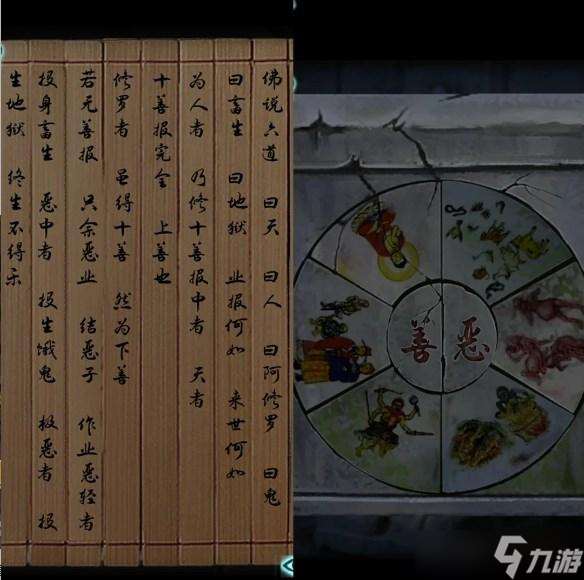 佛说六道 曰天 曰人 曰阿修罗 曰鬼
曰畜生 曰地狱 业报何如 来世何如
为人者 乃修十善报中者 天者
十善报完全 上善也
修罗者 虽得十善 然为下善
若无善报 只余恶业 结恶子 作业恶轻者
投身畜生 恶中者 投生饿鬼 极恶者 投
生地狱 终生不得示
善 恶
九游